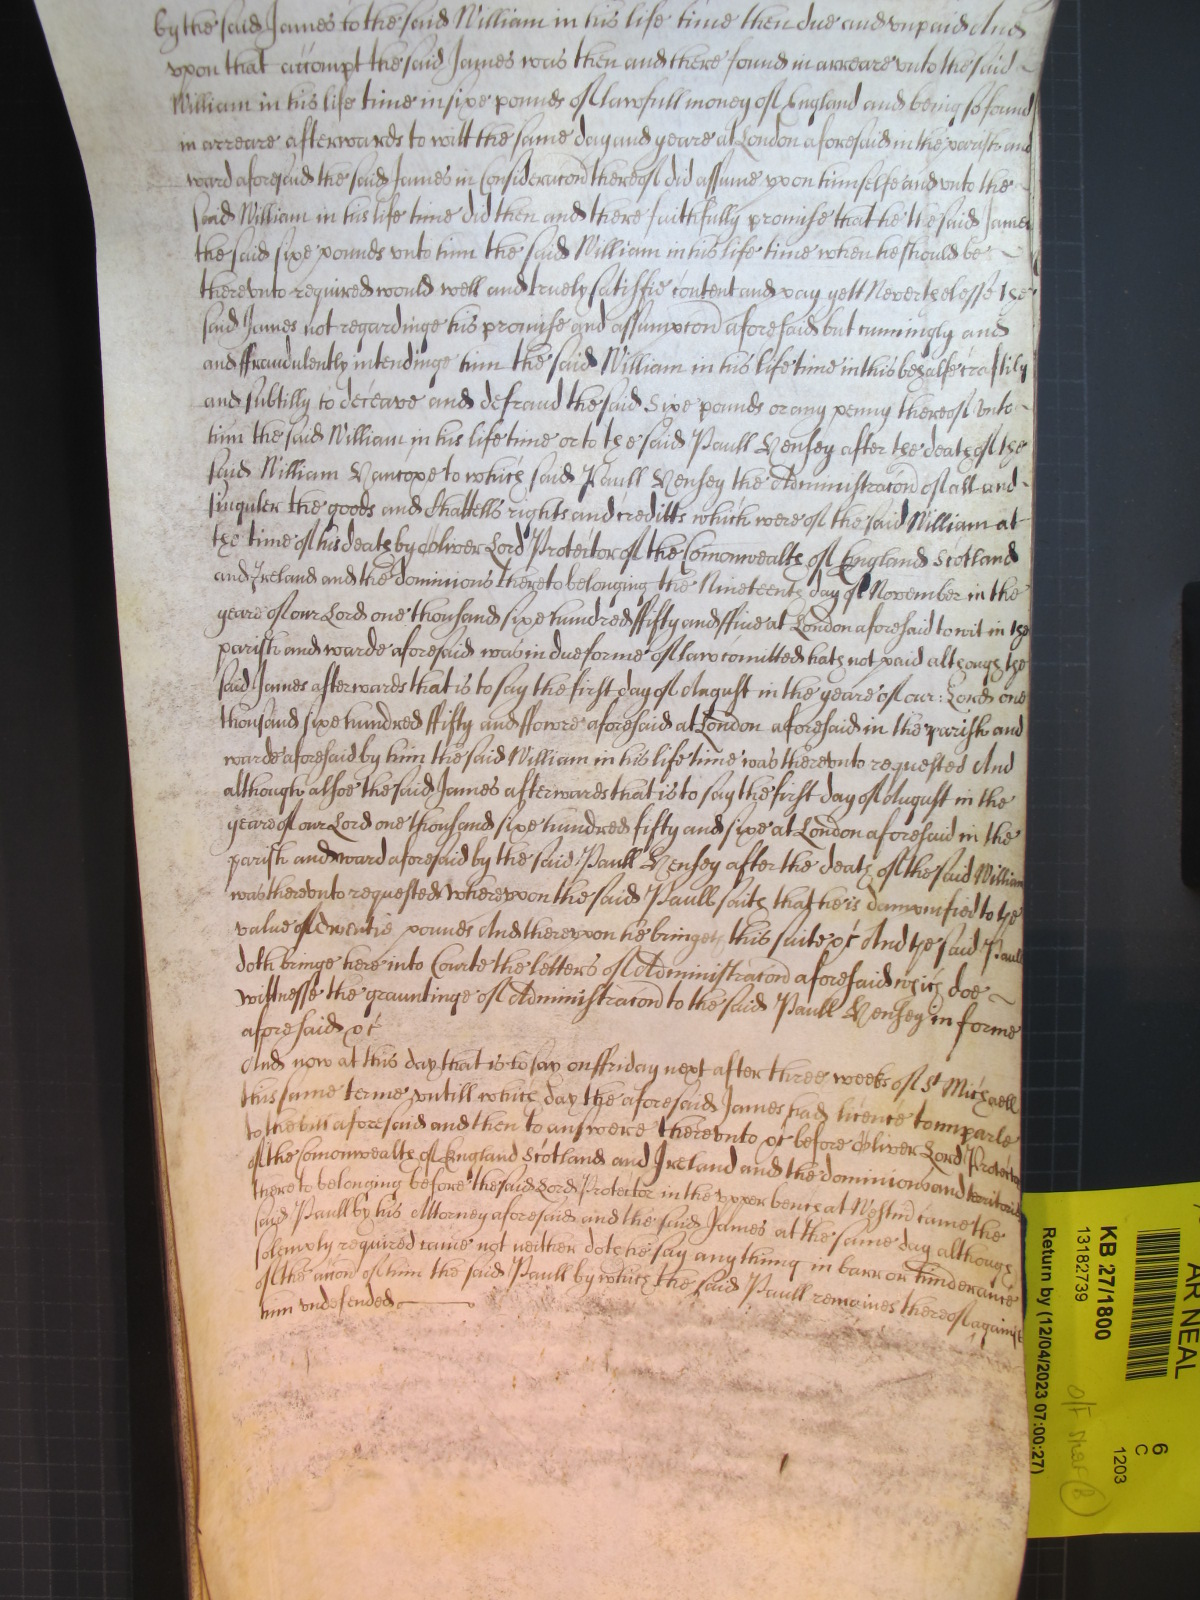 by the said James to the said William in his life time then due and vnpaid And
vpon that accompt the said James was then and there found in arreare vnto the said
William in his life time in sixe pounds of lawfull money of England and being so found
in arreare afterwards to witt the same day and yeare at London aforesaid in the parish and
ward aforesaid the said James in Consideracon thereof did assume vpon himselfe and vnto the
said William in his life time did then and there faithfully promise that he the said James
the said sixe pounds vnto him the said William in his life time when he should be
therevnto required would well and truely satisfie content and pay yett Neverthelesse the
said James not regardinge his promise and assumpcon aforesaid but cunningly and
and ffraudulently intendinge him the said William in his life time in this behalfe craftily
and subtilly to deceave and defraud the said Sixe pounds or any penny thereof vnto
him the said William in his life time or to the said Paull Hensey after the death of the
said William to which said Paull Hensey the Administracon of all and
singuler the goods and Chattells rights and creditts which were of the said William at
the time of his death by Oliver Lord Protector of the Comonwealth of England Scotland
and Ireland and the dominions thereto belonging the Nineteenth day of November in the
yeare of our Lord one thousand sixe hundred ffifty and ffive at London aforesaid to wit in the
parish and warde aforesaid was in due forme of law comitted hath not paid although the
said James afterwards that is to say the first day of August in the yeare of our Lord one
thousand sixe hundred ffifty and ffowre aforesaid at London aforesaid in the parish and
warde aforesaid by him the said William in his life time was therevnto requested And
although alsoe the said James afterwards that is to say the first day of August in the
yeare of our Lord one thousand sixe hundred fifty and sixe at London aforesaid in the
parish and ward aforesaid by the said Paull Hensey after the death of the said William
was therevnto requested wherevpon the said Paull saith that he is dampnified to the
value of Twentie pounds And therevpon he bringeth this suite &c And the said Paull
doth bringe here into Courte the letters of Administracon aforesaid which doe
wittnesse the grauntinge of Administracon to the said Paull Hensey in forme
aforesaid &c
And now at this day that is to say on ffriday next after three weeks of St Michaell
this same terme vntill which day the aforesaid James had licence to imparle
to the bill aforesaid and then to answere therevnto &c before Oliver Lord Protector
of the Comonwealth of England Scotland and Ireland and the dominions and territories
thereto belonging before the said Lord Protector in the vpper bench at Westmr came the
said Paull by his Attorney aforesaid and the said James at the same day although
solemnly required came not neither doth he say any thing in barr or hinderance
of the accon of him the said Paull by which the said Paull remaines thereof against
him vndefended
AR NEAL
KB 27/1800
13182739
Return by (12/04/2023 07:00:27)
6
C
1203